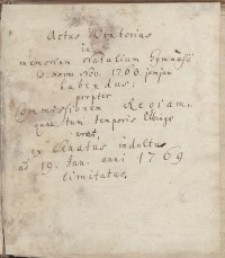 Actus Oratorius
in
memoriam natalium Gymnasii
d. XXIV Nov. 1768
habendus;
propter
Commissionem Regiam,
quae tum temporis Elbingae
erat,
ex Senatus indultu
ad 19. Jan. anni 1769
limitatus.